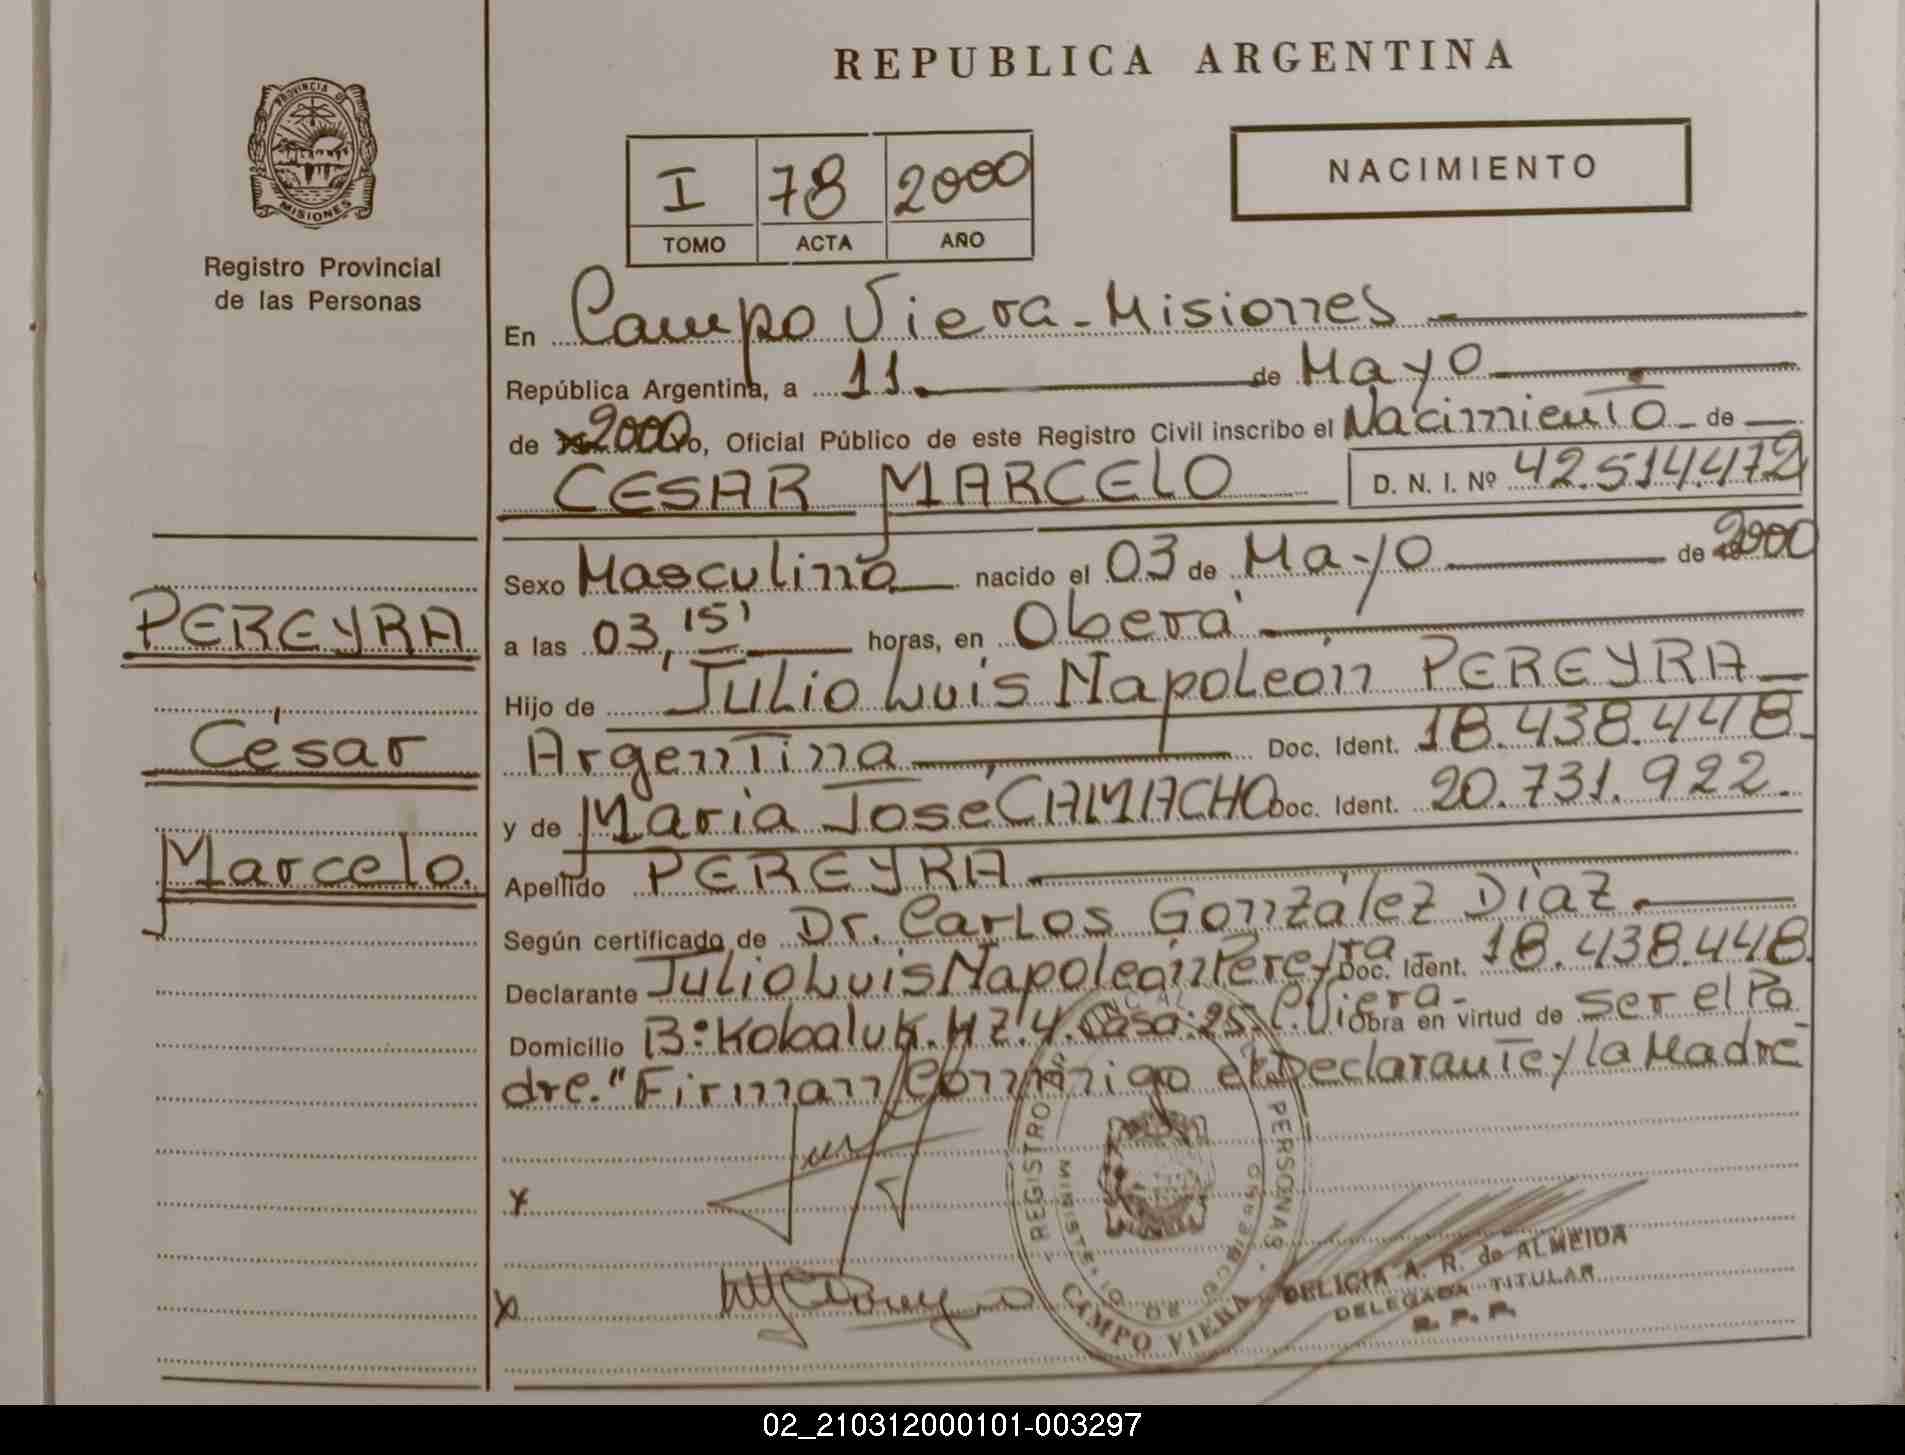 REPUBLICA ARGENTINA
PROVINCIA DE
MISIONES
Registro Provincial
de las Personas
I 78 2000
TOMO ACTA AÑO
NACIMIENTO
En Campo Viera - Misiones
República Argentina, a 11 de Mayo
de 2000 yo, Oficial Público de este Registro Civil inscribo el Nacimiento de
CESAR MARCELO D. N. I. Nº 42.514.472
Sexo Masculino nacido el 03 de Mayo de 2000
a las 03,15' horas, en Oberá
Hijo de Julio Luis Napoleón PEREYRA
Argentina Doc. Ident. 18.438.448.
y de María José CAMACHO Doc. Ident. 20.731.922.
Apellido PEREYRA
Según certificado de Dr. Carlos González Díaz.
Declarante Julio Luis Napoleón Pereyra Doc. Ident. 18.438.448
Domicilio B: Kobaluk. MZ. 4. Casa: 25. C. Viera - Obra en virtud de ser el Pa
dre." Firman Conmigo el Declarante y la Madre
PEREYRA
César
Marcelo.
x
x
REGISTRO PERSONAS
CAMPO VIERA
DELICIA A. R. de ALMEIDA
DELEGADA TITULAR
R. P. P.
02_210312000101-003297